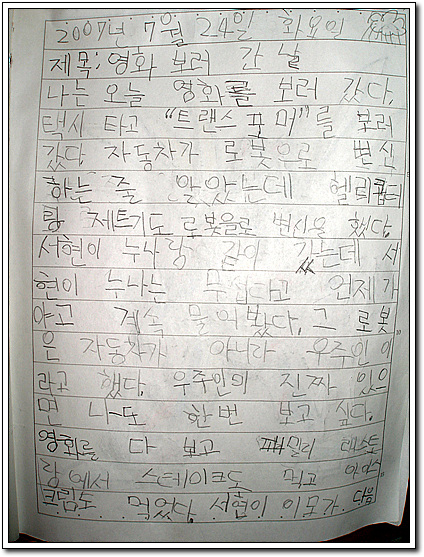 2007년 7월 24일 화요일
제목: 영화 보러 간 날
나는 오늘 영화를 보러 갔다.
택시 타고 "트랜스포머"를 보러
갔다. 자동차가 로봇으로 변신
하는 줄 알았는데 헬리콥터
랑 제트기도 로봇을로 변신을 했다.
서현이 누나랑 같이 갔는데 서
현이 누나는 무섭다고 언제가
야고 계속 물어봤다. 그 로봇
은 자동차가 아니라 우주인이
라고 했다. 우주인이 진짜 있으
면 나도 한번 보고 싶다.
영화를 다 보고 패밀리 레스토
랑에서 스테이크도 먹고 아이스
크림도 먹었다. 서현이 이모가 다음